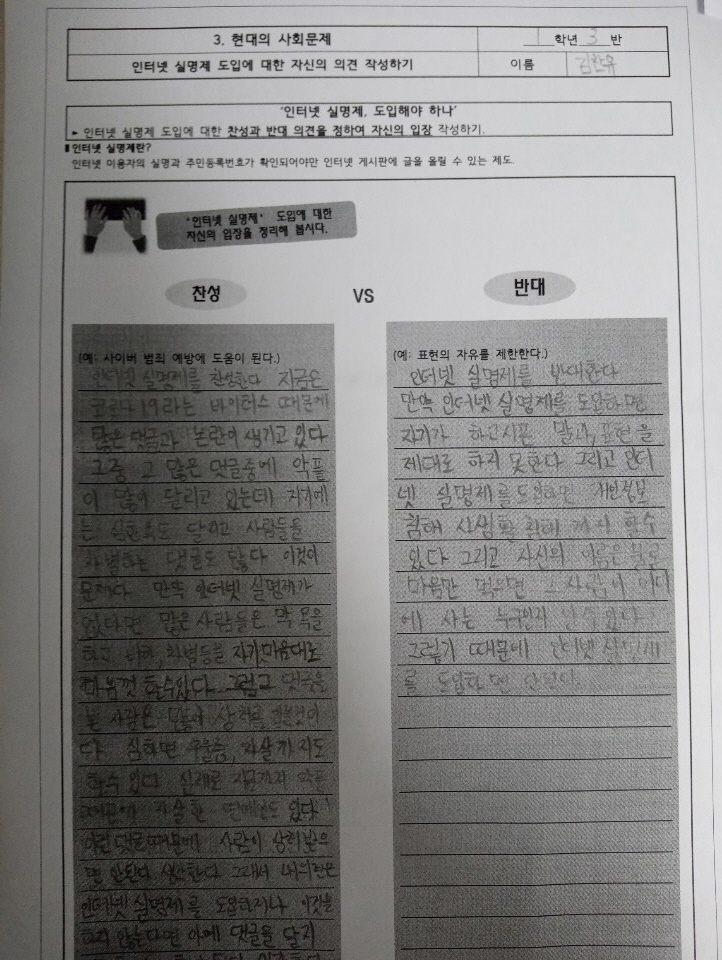 3. 현대의 사회문제
1 학년 3 반
인터넷 실명제 도입에 대한 자신의 의견 작성하기
이름 김찬유
'인터넷 실명제, 도입해야 하나'
► 인터넷 실명제 도입에 대한 찬성과 반대 의견을 정하여 자신의 입장 작성하기.
▮인터넷 실명제란?
인터넷 이용자의 실명과 주민등록번호가 확인되어야만 인터넷 게시판에 글을 올릴 수 있는 제도.
'인터넷 실명제' 도입에 대한
자신의 입장을 정리해 봅시다.
찬성
VS
반대
(예: 사이버 범죄 예방에 도움이 된다.)
인터넷 실명제를 찬성한다 지금은
코로나19라는 바이러스 때문에
많은 댓글과 논란이 생기고 있다
그중 그 많은 댓글중에 악플
이 많이 달리고 있는데
달리고 사람들을
차별하는 댓글도 많다 이것이
문제다 만약 인터넷 실명제가
없다면 많은 사람들은 막 욕을
하고 차별등을 자기마음대로
마음껏 할수있다 그리고 댓글을
본 사람은 상처를
다 심하면 우울증, 자살까지도
할수 있다 실제로 지금까지 악플
때문에 자살한 연예인도 있다
이런 댓글때문에 사람이 상처받으
면 안된다 생각한다 그래서 내의견은
인터넷 실명제를 도입하거나 이것을
하지 않는다면 아예 댓글을 달지
(예: 표현의 자유를 제한한다.)
인터넷 실명제를 반대한다
만약 인터넷 실명제를 도입하면
자기가 하고시픈 말과, 표현을
제대로 하지 못한다 그리고 인터
넷 실명제를 도입하면 개인정보
침해 사생활 침해 까지 할수
있다 그리고 자신의 이름은 물론
마음만 먹으면 그 사람이 어디
에 사는 누구인지 알수있다
그렇기 때문에 인터넷 실명제
를 도입하면 안된다.